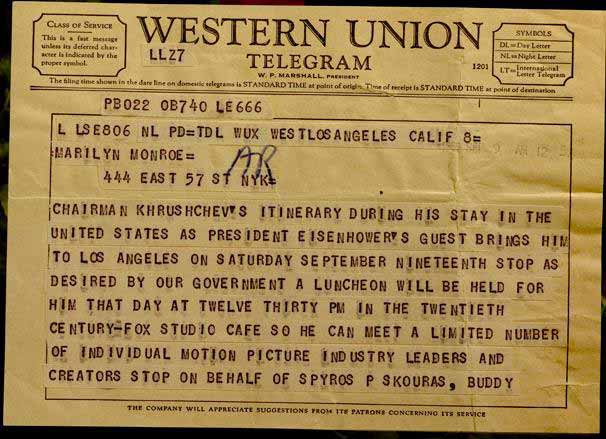 CLASS OF SERVICE
This is a fast message
unless its deferred char-
acter is indicated by the
proper symbol.
WESTERN UNION
TELEGRAM
W. P. MARSHALL, PRESIDENT
1201
SYMBOLS
DL=Day Letter
NL=Night Letter
LT=International Letter Telegram
LLZ7
The filing time shown in the date line on domestic telegrams is STANDARD TIME at point of origin. Time of receipt is STANDARD TIME at point of destination
PB022 OB740 LE666
L LSE806 NL PD=TDL WUX WESTLOSANGELES CALIF 8=
MARILYN MONROE=
AR
444 EAST 57 ST NYK=
CHAIRMAN KHRUSHCHEV'S ITINERARY DURING HIS STAY IN THE
UNITED STATES AS PRESIDENT EISENHOWER'S GUEST BRINGS HIM
TO LOS ANGELES ON SATURDAY SEPTEMBER NINETEENTH STOP AS
DESIRED BY OUR GOVERNMENT A LUNCHEON WILL BE HELD FOR
HIM THAT DAY AT TWELVE THIRTY PM IN THE TWENTIETH
CENTURY-FOX STUDIO CAFE SO HE CAN MEET A LIMITED NUMBER
OF INDIVIDUAL MOTION PICTURE INDUSTRY LEADERS AND
CREATORS STOP ON BEHALF OF SPYROS P SKOURAS, BUDDY
THE COMPANY WILL APPRECIATE SUGGESTIONS FROM ITS PATRONS CONCERNING ITS SERVICE